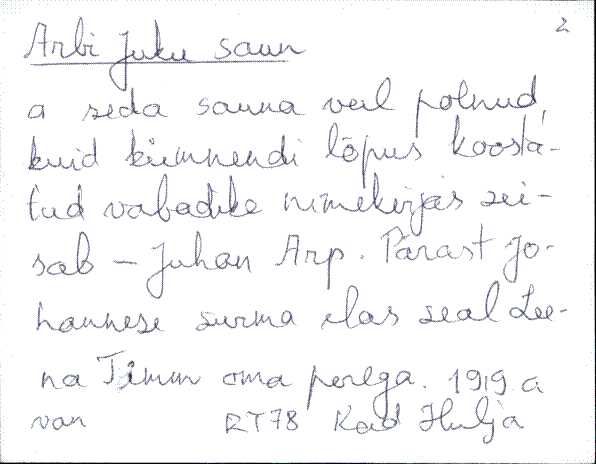 2
Arbi Juku saun
a seda sauna veel polnud,
kuid kümnendi lõpus koosta-
tud vabadike nimekirjas sei-
sab – Juhan Arp. Pärast Jo-
hannese surma elas seal Lee-
na Timm oma perega. 1919 a
van RT78 Kad Hulja